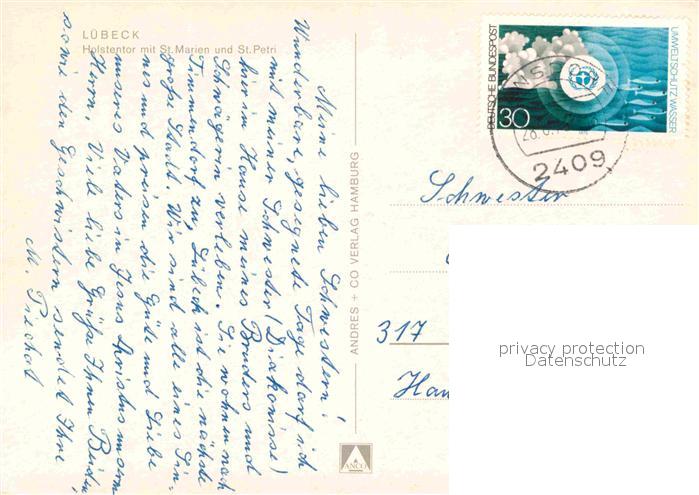 LÜBECK
Holstentor mit St. Marien und St. Petri
Meine lieben Schwestern!
Wunderbare, gesegnete Tage darf ich
mit meiner Schwester (Diakonisse)
hier im Hause meines Bruders und
Schwägerin verleben. Sie wohnen nach
Timmendorf zu, Lübeck ist die nächste
große Stadt. Wir sind alle eines Sin-
nes und preisen die Güte und Liebe
unseres Vaters in Jesus Christus unserm
Herrn. Viele liebe Grüße Ihnen Beiden
sowie den Geschwistern sendet Ihre
M.
ANDRES + CO VERLAG HAMBURG
ANCO
DEUTSCHE BUNDESPOST
30
UMWELTSCHUTZ: WASSER
2409
Schwester
317
privacy protection
Datenschutz